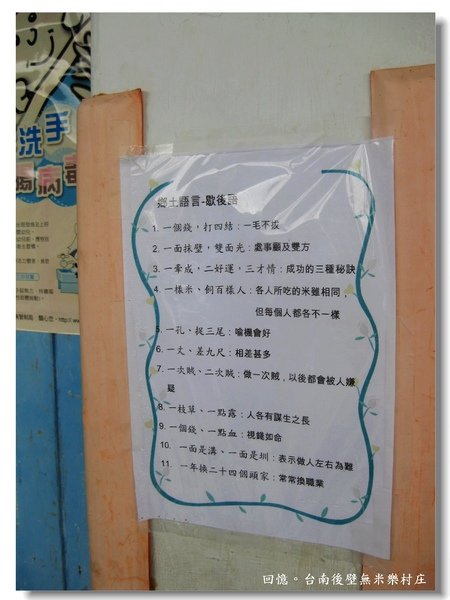 洗手
病毒
鄉土語言-歇後語
1. 一個錢，打四結：一毛不拔
2. 一面抹壁，雙面光：處事顧及雙方
3. 一牽成，二好運，三才情：成功的三種秘訣
4. 一樣米、飼百樣人：各人所吃的米雖相同，
但每個人都各不一樣
5. 一孔、掠三尾：喻機會好
6. 一丈、差九尺：相差甚多
7. 一次賊、二次賊：做一次賊，以後都會被人嫌
疑
8. 一枝草、一點露：人各有謀生之長
9. 一個錢、一點血：視錢如命
10. 一面是溝、一面是圳：表示做人左右為難
11. 一年換二十四個頭家：常常換職業
回憶。台南後壁無米樂村庄